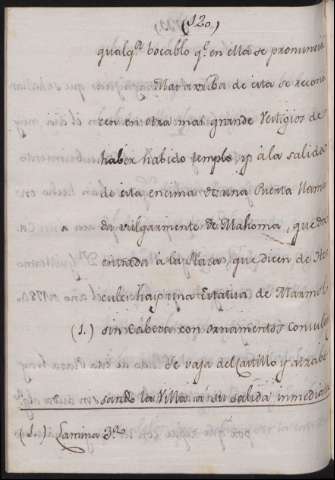 (120)
qualq.ª bocablo q.e en ella se pronuncia
Mas arriba de esta se recono
cen en otra mas grande Vestigios de
haber habido templo, y à la salida
de esta encima de una Puerta llama
da vulgarmente de Mahoma, que da
entrada à la Plaza, que dicen de Her
cules hay una Estatua de Marmol
(1.) sin Cabeza con ornamentos Consula
Se vaja del Castillo y atrabe
sando la Villa à su salida inmediat
(1.) Lamina 3.ª